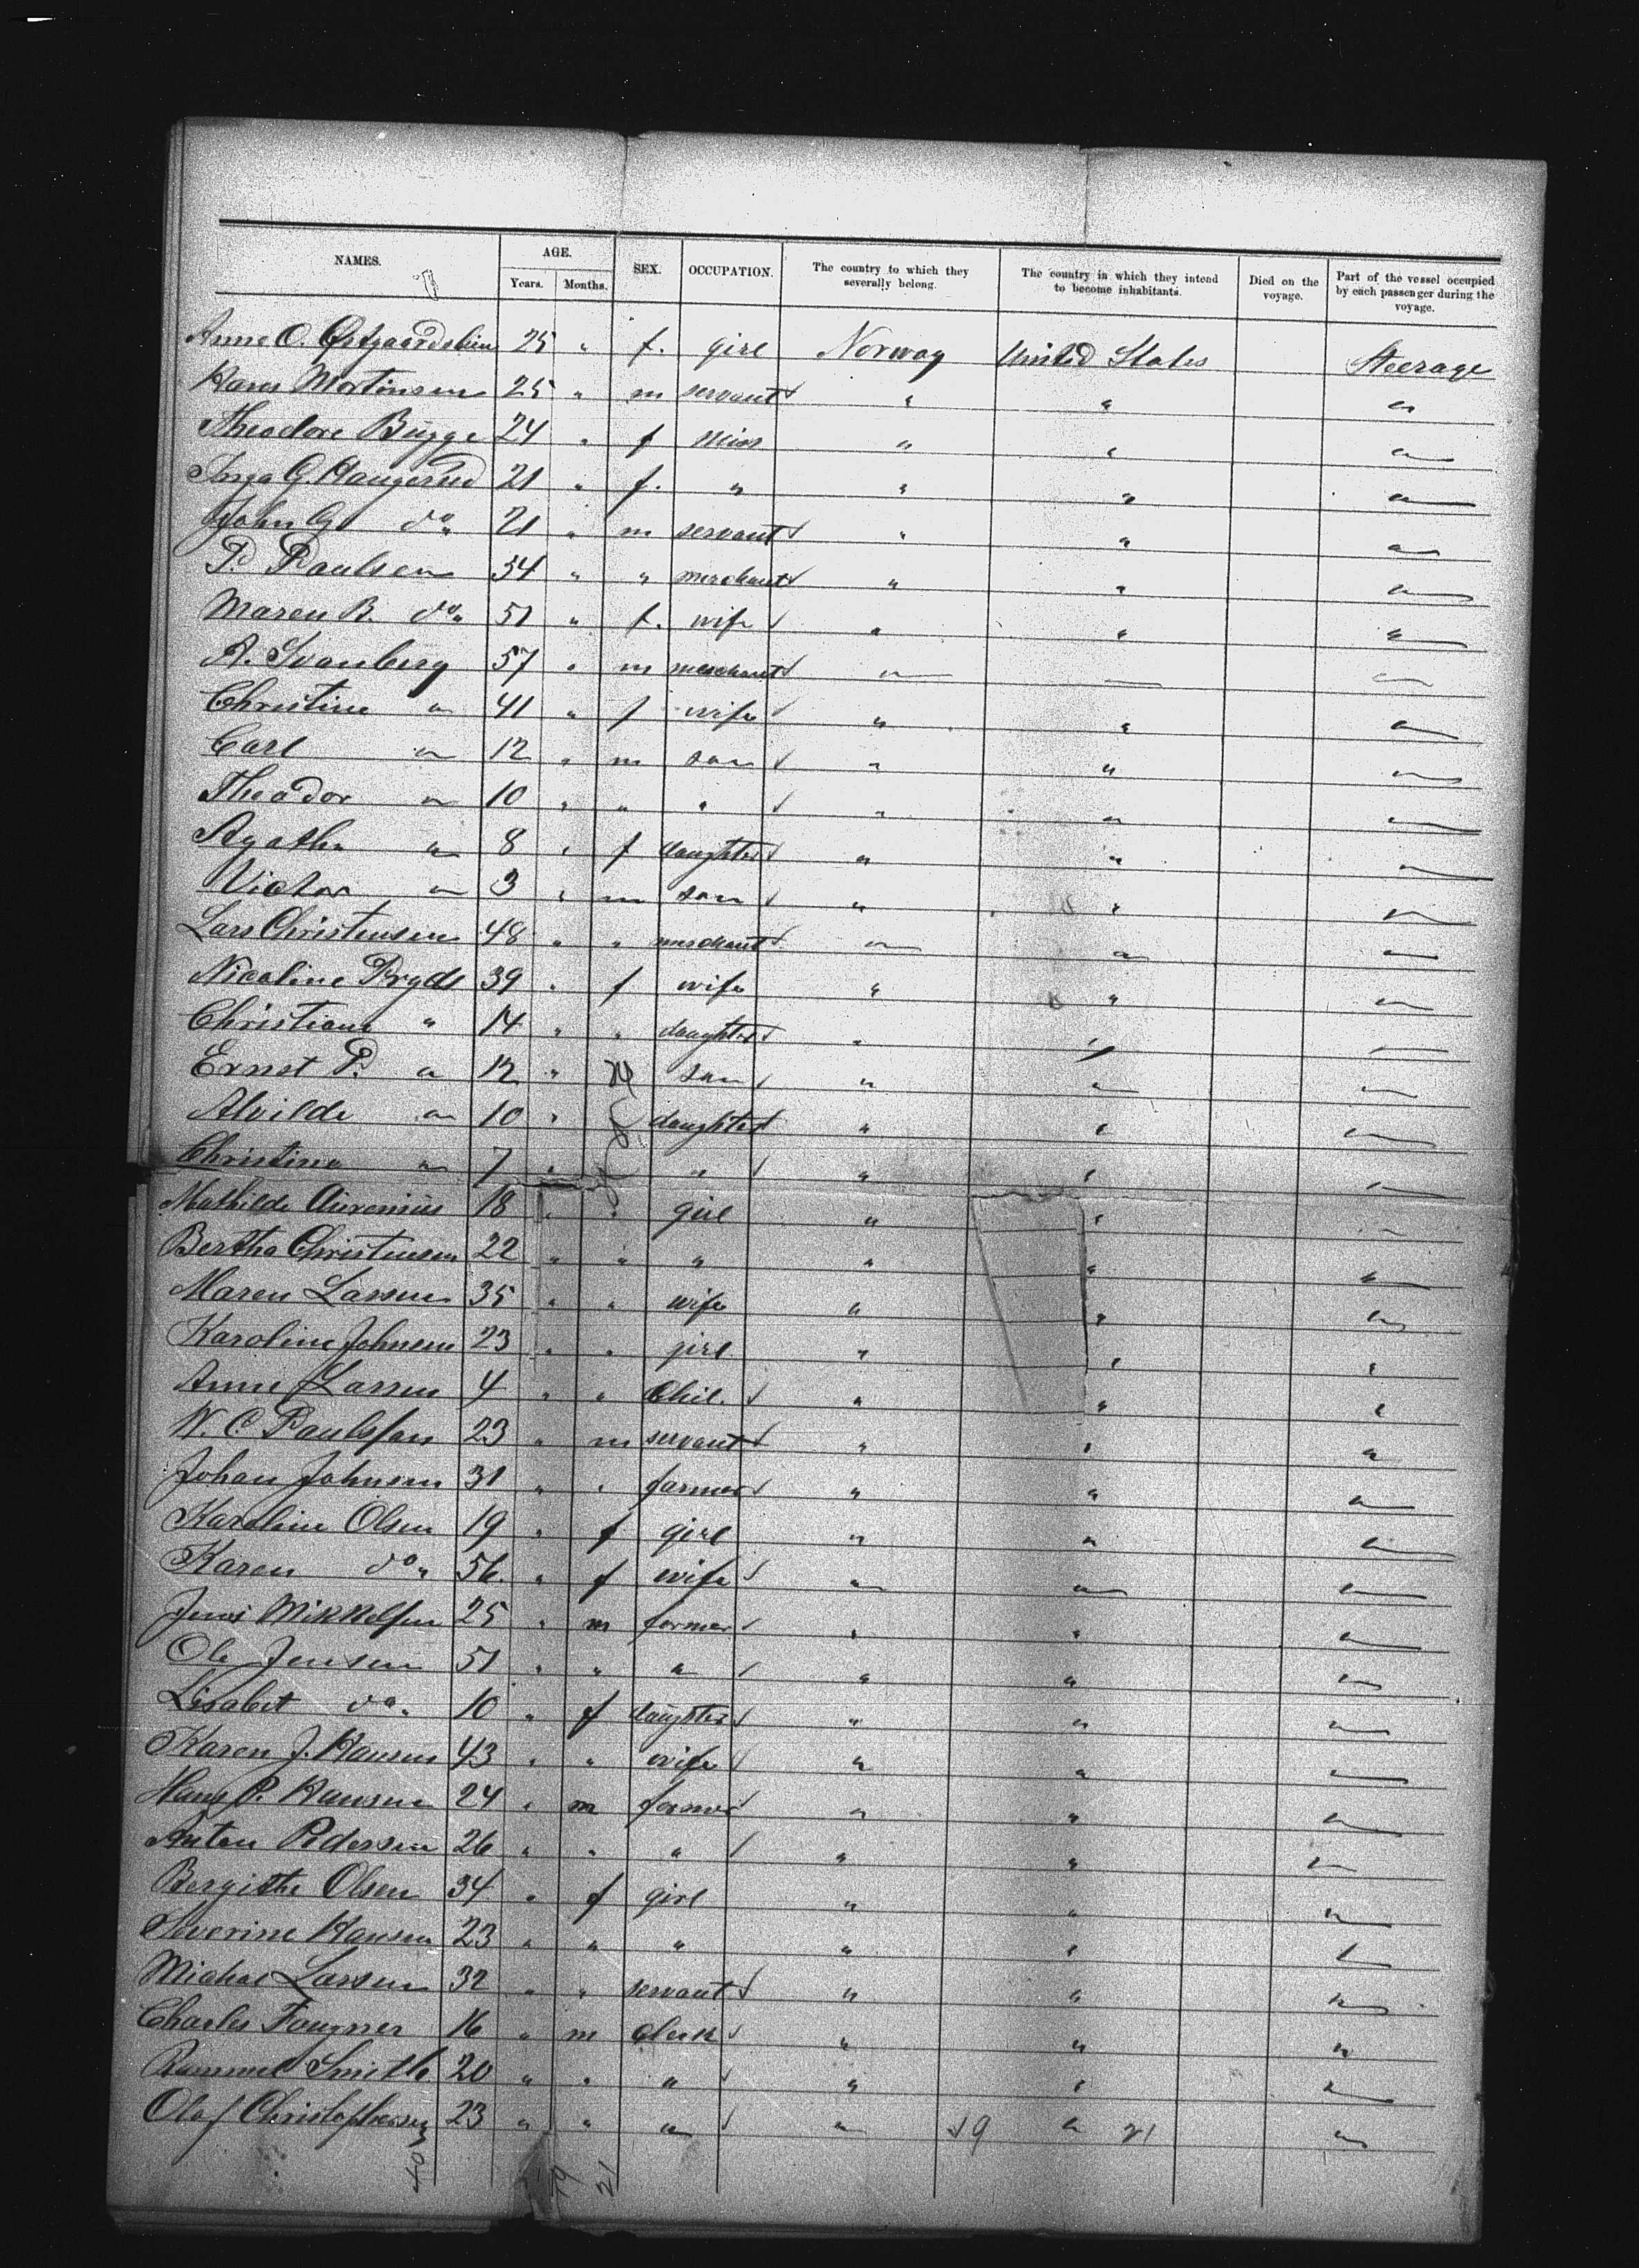 NAMES. AGE. SEX. OCCUPATION. The country to which they severally belong. The country in which they intend to become inhabitants. Died on the voyage. Part of the vessel occupied by each passenger during the voyage.
Years. Months.
Anne O. 25 " f. girl Norway United States Steerage
Hans Mortinsen 25 " m servant " " "
Theodore Bugge 24 " f miss " " "
Inga G. Haugerud 21 " f. " " " "
John G. do " 21 " m servant " " "
P. Paulsen 54 " " merchant " " "
Maren B. do " 51 " f. wife " " "
A. Svanberg 57 " m merchant " " "
Christine " 41 " f wife " " "
Carl " 12 " m son " " "
Theodor " 10 " " " " " "
Agatha " 8 " f daughter " " "
Victor " 3 " m son " " "
Lars Christensen 48 " " merchant " " "
Nicoline Bryde 39 " f wife " " "
Christiane " 14 " " daughter " " "
Ernst P. " 12 " M son " " "
Alvilde " 10 " f daughter " " "
Christine " 7 " f " " " "
Mathilde 18 " " girl " " "
Bertha Christensen 22 " " " " " "
Maren Larsen 35 " " wife " " "
Karoline Johnsen 23 " " girl " " "
Anne Larsen 4 " " Chil. " " "
W. C. Paulsson 23 " m servant " " "
Johan Johnsen 31 " " farmer " " "
Karoline Olsen 19 " f girl " " "
Karen do " 56 " f wife " " "
Jens Mikkelsen 25 " m farmer " " "
Ole Jensen 51 " " " " " "
Lisabet do " 10 " f daughter " " "
Karen J. Hansen 43 " " wife " " "
Hans P. Hansen 24 " m farmer " " "
Anton Pedersen 26 " " " " " "
Bergithe Olsen 34 " f girl " " "
Severine Hansen 23 " " " " " "
Michal Larsen 32 " " servant " " "
Charles Fougner 16 " m clerk " " "
Smith 20 " " " " " "
Olaf Christophersen 23 " " " " 19 " 21 "
40 19 21